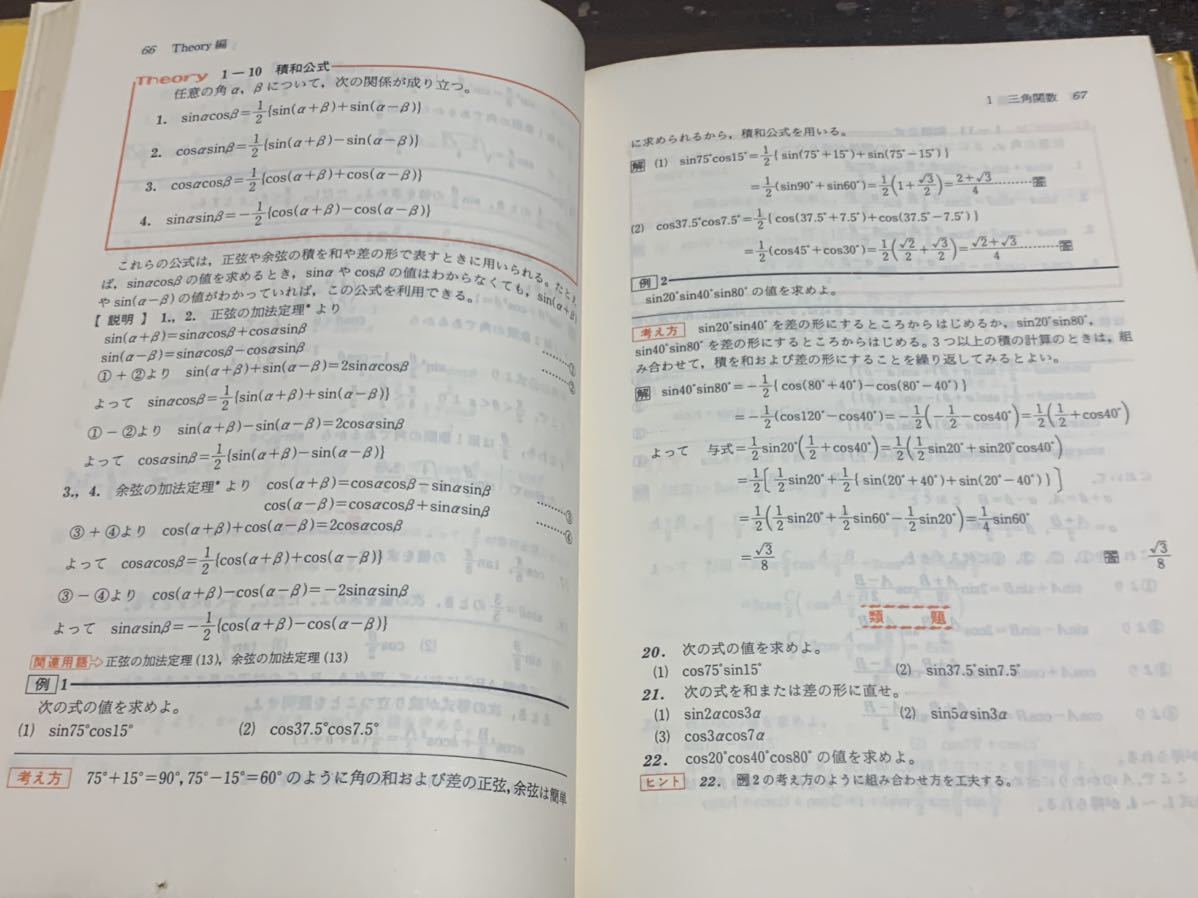 66 Theory 編
Theory 1－10 積和公式
任意の角α，βについて，次の関係が成り立つ。
1. sinαcosβ=1/2{sin(α+β)+sin(α−β)}
2. cosαsinβ=1/2{sin(α+β)−sin(α−β)}
3. cosαcosβ=1/2{cos(α+β)+cos(α−β)}
4. sinαsinβ=−1/2{cos(α+β)−cos(α−β)}
これらの公式は，正弦や余弦の積を和や差の形で表すときに用いられる。たとえ
ば，sinαcosβの値を求めるとき，sinαやcosβの値はわからなくても，sin(α+β)
やsin(α−β)の値がわかっていれば，この公式を利用できる。
【説明】1.，2. 正弦の加法定理*より
sin(α+β)=sinαcosβ+cosαsinβ ………①
sin(α−β)=sinαcosβ−cosαsinβ ………②
①+②より sin(α+β)+sin(α−β)=2sinαcosβ
よって sinαcosβ=1/2{sin(α+β)+sin(α−β)}
①−②より sin(α+β)−sin(α−β)=2cosαsinβ
よって cosαsinβ=1/2{sin(α+β)−sin(α−β)}
3.，4. 余弦の加法定理*より cos(α+β)=cosαcosβ−sinαsinβ ………③
cos(α−β)=cosαcosβ+sinαsinβ ………④
③+④より cos(α+β)+cos(α−β)=2cosαcosβ
よって cosαcosβ=1/2{cos(α+β)+cos(α−β)}
③−④より cos(α+β)−cos(α−β)=−2sinαsinβ
よって sinαsinβ=−1/2{cos(α+β)−cos(α−β)}
関連用語⇨正弦の加法定理(13)，余弦の加法定理(13)
例 1
次の式の値を求めよ。
(1) sin75°cos15° (2) cos37.5°cos7.5°
考え方 75°+15°=90°，75°−15°=60°のように角の和および差の正弦，余弦は簡単
1 三角関数 67
に求められるから，積和公式を用いる。
解 (1) sin75°cos15°=1/2{sin(75°+15°)+sin(75°−15°)}
=1/2(sin90°+sin60°)=1/2(1+√3/2)=(2+√3)/4………答
(2) cos37.5°cos7.5°=1/2{cos(37.5°+7.5°)+cos(37.5°−7.5°)}
=1/2(cos45°+cos30°)=1/2(√2/2+√3/2)=(√2+√3)/4………答
例 2
sin20°sin40°sin80°の値を求めよ。
考え方 sin20°sin40°を差の形にするところからはじめるか，sin20°sin80°，
sin40°sin80°を差の形にするところからはじめる。3つ以上の積の計算のときは，組
み合わせて，積を和および差の形にすることを繰り返してみるとよい。
解 sin40°sin80°=−1/2{cos(80°+40°)−cos(80°−40°)}
=−1/2(cos120°−cos40°)=−1/2(−1/2−cos40°)=1/2(1/2+cos40°)
よって 与式=1/2sin20°(1/2+cos40°)=1/2(1/2sin20°+sin20°cos40°)
=1/2[1/2sin20°+1/2{sin(20°+40°)+sin(20°−40°)}]
=1/2(1/2sin20°+1/2sin60°−1/2sin20°)=1/4sin60°
=√3/8 答 √3/8
類 題
20. 次の式の値を求めよ。
(1) cos75°sin15° (2) sin37.5°sin7.5°
21. 次の式を和または差の形に直せ。
(1) sin2αcos3α (2) sin5αsin3α
(3) cos3αcos7α
22. cos20°cos40°cos80°の値を求めよ。
ヒント 22. 例2の考え方のように組み合わせ方を工夫する。